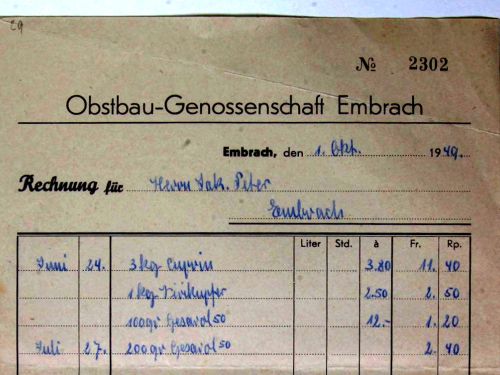 29
№ 2302
Obstbau-Genossenschaft Embrach
Embrach, den 1. Okt. 1949.
Rechnung für Herrn Jak. Peter
Embrach
Liter Std. à Fr. Rp.
Juni 24. 3 kg Cuprin 3.80 11. 40
1 kg Virikupfer 2.50 2. 50
100 gr Gesarol 50 12.- 1. 20
Juli 27. 200 gr Gesarol 50 2. 40